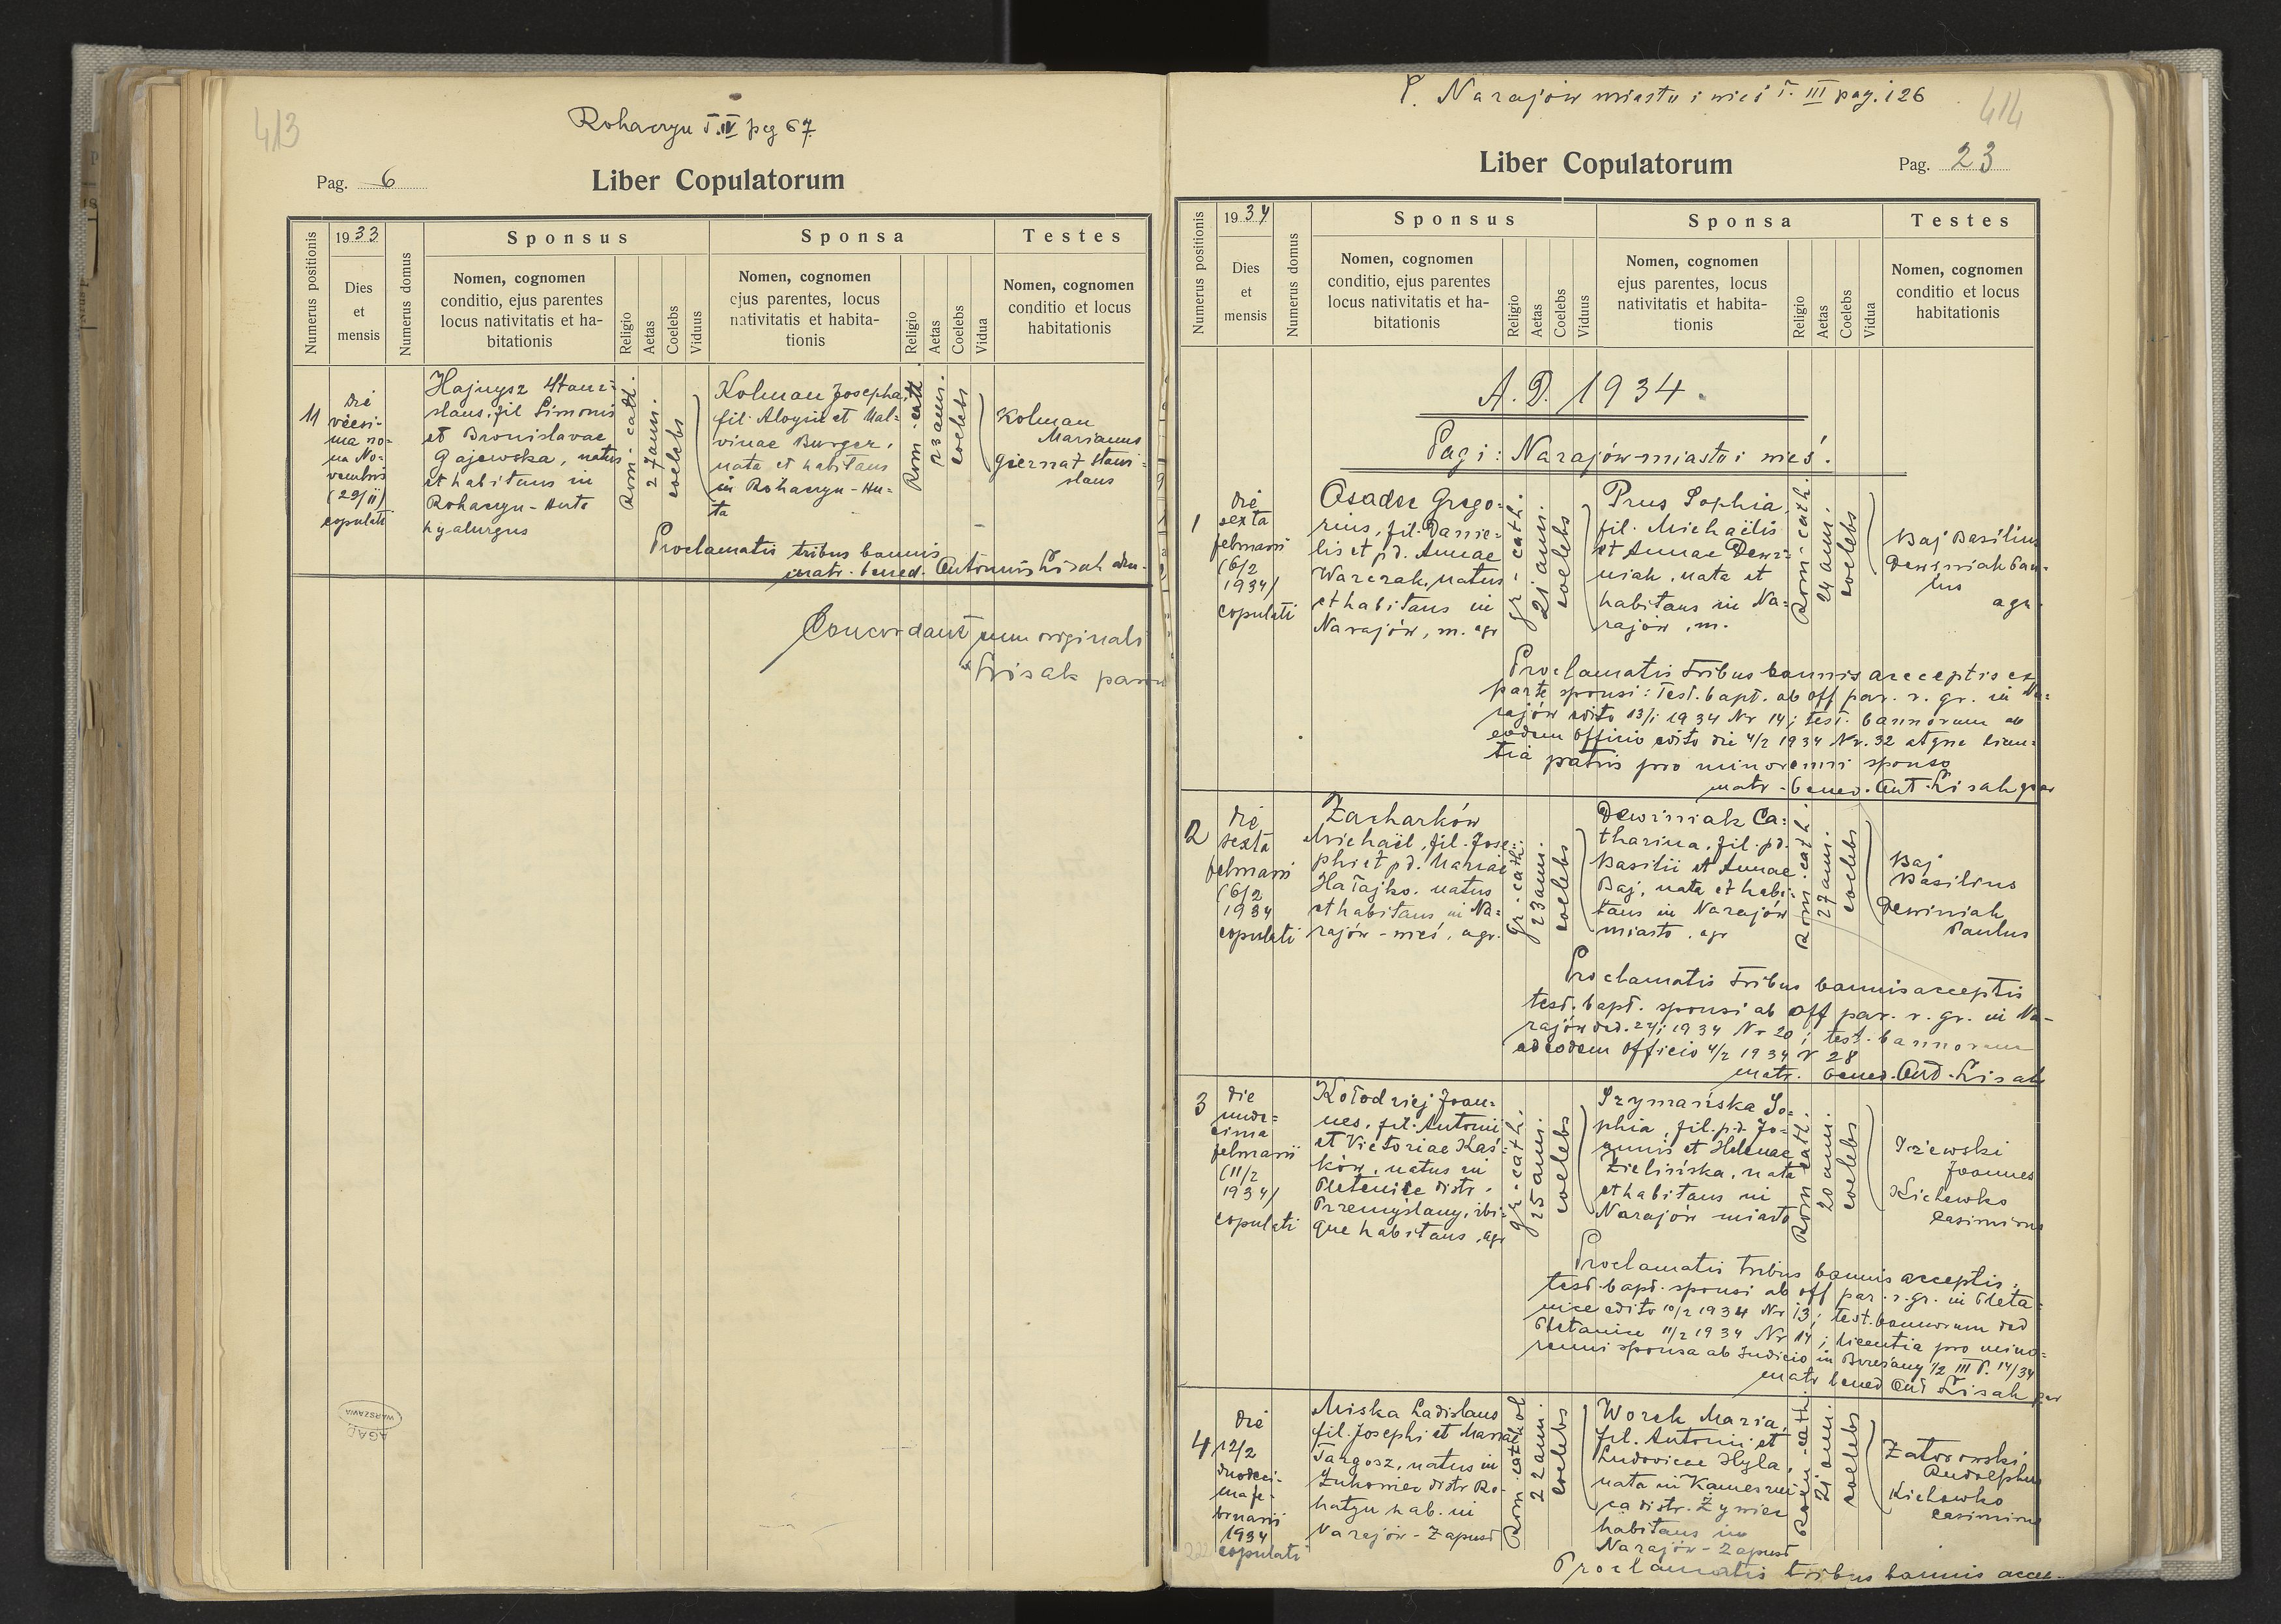 413
Rohaczyn T. IV pag 67
Pag. 6
Liber Copulatorum
Numerus positionis
1933
Dies
et
mensis
Numerus domus
Sponsus
Nomen, cognomen
conditio, ejus parentes
locus nativitatis et ha-
bitationis
Religio
Aetas
Coelebs
Viduus
Sponsa
Nomen, cognomen
ejus parentes, locus
nativitatis et habita-
tionis
Religio
Aetas
Coelebs
Vidua
Testes
Nomen, cognomen
conditio et locus
habitationis
11
die
vicesi-
ma no-
na No-
vembris
(29/11)
copulati
Hajnysz Stani-
slaus, fil Simonis
et Bronislavae
Gajewska, natus
et habitans in
Rohaczyn-Huta
hyalurgus
Rom-cath.
27 ann.
coelebs
Kolman Josepha
fil. Aloysii et Mal-
vinae Burger,
nata et habitans
in Rohaczyn-Hu-
ta
Rom.-cath.
23 ann.
coelebs
Kolman
Marianus
Giernat Stani-
slaus
Proclamatis tribus bannis
matr. bened. Antonius Lisak adm.
Concordant cum originali
Lisak
AGAD
WARSZAWA
P. Narajów miasto i wieś T. III pag. 126
414
Liber Copulatorum
Pag. 23
Numerus positionis
1934
Dies
et
mensis
Numerus domus
Sponsus
Nomen, cognomen
conditio, ejus parentes
locus nativitatis et ha-
bitationis
Religio
Aetas
Coelebs
Viduus
Sponsa
Nomen, cognomen
ejus parentes, locus
nativitatis et habita-
tionis
Religio
Aetas
Coelebs
Vidua
Testes
Nomen, cognomen
conditio et locus
habitationis
A. D. 1934.
Pagi: Narajów-miasto i wieś.
1
die
sexta
februarii
(6/2
1934)
copulati
Osadca Grego-
rius, fil. Danie-
lis et pd. Annae
Warczak, natus
et habitans in
Narajów, m. agr
gr-cath.
21 ann.
coelebs
Prus Sophia,
fil. Michaëlis
et Annae Dewi-
niak, nata et
habitans in Na-
rajów, m.
Rom-cath.
24 ann.
coelebs
Baj Basilius
Dewiniak Pau-
lus
agr.
Proclamatis tribus bannis acceptis ex
parte sponsi: test. bapt. ab off par. r. gr. in Na-
rajów edito 13/1 1934 Nr 14; test. bannorum ab
eodem officio edito die 4/2 1934 Nr. 32 atque licen-
tia patris pro minorenni sponso
matr. bened. Ant. Lisak
2
die
sexta
februarii
(6/2
1934
copulati
Zacharków
Michaël, fil. Jose-
phi et pd. Mariae
Hałajko, natus
et habitans in Na-
rajów-wieś, agr.
gr-cath.
23 ann.
coelebs
Dewiniak Ca-
tharina, fil. pd.
Basilii et Annae
Baj, nata et habi-
tans in Narajów
miasto, agr
Rom-cath.
27 ann.
coelebs
Baj
Basilius
Dewiniak
Paulus
Proclamatis tribus bannis acceptis
test. bapt. sponsi ab off par. r. gr. in Na-
rajów 1934 Nr 20; test. bannorum
ab eodem officio 4/2 1934 N 28
matr. bened. Ant. Lisak
3
die
unde-
cima
februarii
(11/2
1934)
copulati
Kołodziej Joan-
nes, fil. Antonii
et Victoriae Kaś-
ków, natus in
Pletenice distr.
Przemyślany, ibi-
que habitans, agr
gr-cath.
25 ann.
coelebs
Szymańska So-
phia, fil. pd. Jo-
annis et Helenae
Zielińska, nata
et habitans in
Narajów miasto
Rom cath.
20 ann.
coelebs
Joannes
Kichewko
Casimirus
Proclamatis tribus bannis acceptis,
test. bapt. sponsi ab off par. r. gr. in Pleta-
nice edito 10/2 1934 Nr 13; test. bannorum ded
Pletanice 11/2 1934 Nr 14; licentia pro mino-
renni sponsa ab Judicio in Brzeżany 1/2 III P. 14/34
matr bened Ant Lisak
4
die
12/2
duodeci-
ma fe-
bruarii
1934
copulati
Miska Ladislaus
fil. Josephi et Mariae
Targosz, natus in
Żukowiec distr Ro-
hatyn hab. in
Narajów-Zapust
Rom. cathol
22 ann.
coelebs
Worek Maria,
fil. Antonii et
Ludovicae Hyla,
nata in Kamesznic-
ca distr. Żywiec
habitans in
Narajów-Zapust
Rom-cath
21 ann.
coelebs
Zatorowski
Rudolphus
Kichewko
Casimirus
Proclamatis tribus bannis accep-